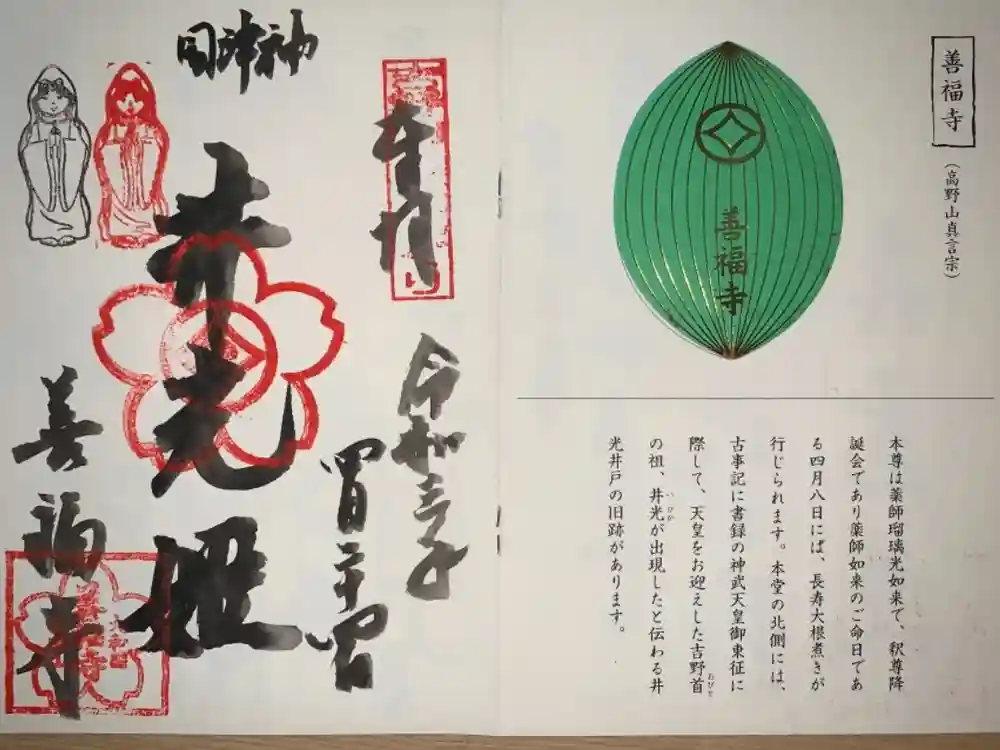 善福寺
(高野山真言宗)
善福寺
本尊は薬師瑠璃光如来で、釈尊降
誕会であり薬師如来のご命日であ
る四月八日にば、長寿大根煮きが
行じられます。本堂の北側には、
古事記に書録の神武天皇御東征に
際して、天皇をお迎えした吉野首
おびと
の祖、井光が出現したと伝わる井
いひか
光井戸の旧跡があります。
奉拝
令和三年
四月二十四日
神
井光姫
善福寺